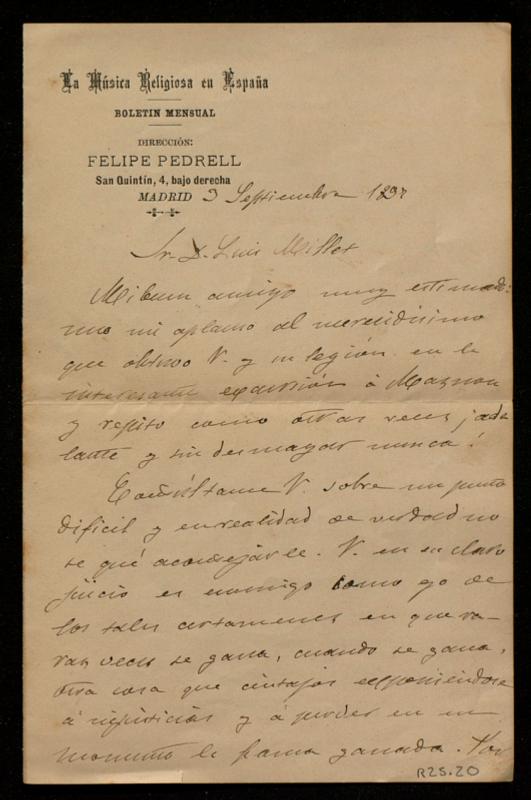 La Música Religiosa en España
BOLETIN MENSUAL
DIRECCIÓN:
FELIPE PEDRELL
San Quintín, 4, bajo derecha
MADRID 3 Septiembre 1897
Sr. D. Luis Millet
Mi buen amigo muy estimado:
uno mi aplauso al merecidísimo
que obtuvo V. y su legión en la
interesante excursión á
y repito como otras veces ¡ade
lante y sin desmayar nunca!
Consúltame V. sobre un punto
dificil y en realidad de verdad no
se qué aconsejarle. V. en su claro
juicio es enemigo como yo de
los tales certamenes en que ra-
ras veces se gana, cuando se gana,
otra cosa que cintajos exponiendose
á injusticias y á perder en un
momento la fama ganada. Por
R25.20